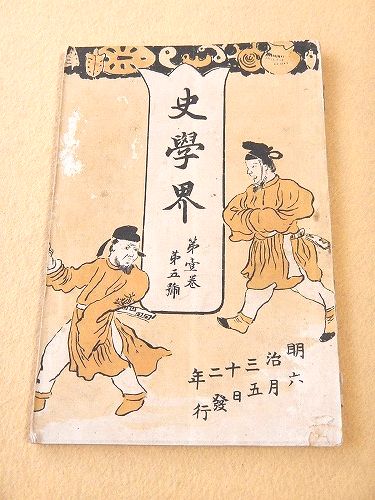 史學界
第壹卷
第五號
明治三十二年
六月五日發行